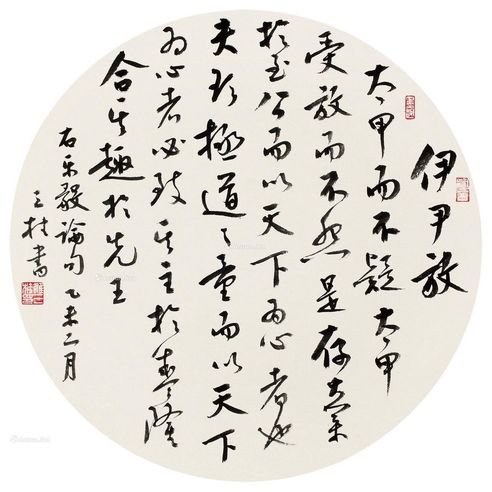 伊尹放
大甲而不疑大甲
受放而不怨是存大業
於至公而以天下為心者也
夫欲極道之量而以天下
為心者必致其主於盛隆
合其趣於先王
右樂毅論句乙未二月
桂書